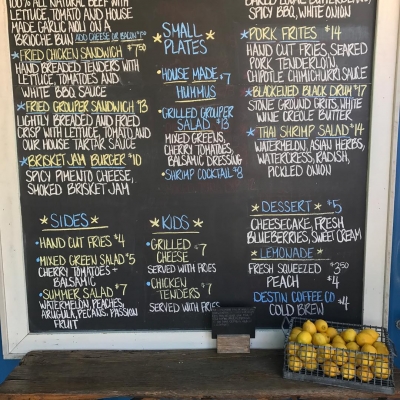 100% ALL NATURAL BEEF WITH
LETTUCE, TOMATO AND HOUSE
MADE GARLIC AIOLI ON A
BRIOCHE BUN ADD CHEESE OR BACON $1
FRIED CHICKEN SANDWICH $7.50
HAND BREADED TENDERS WITH
LETTUCE, TOMATOES AND
WHITE BBQ SAUCE
FRIED GROUPER SANDWICH $13
LIGHTLY BREADED AND FRIED
CRISP WITH LETTUCE, TOMATO, AND
OUR HOUSE TARTAR SAUCE
BRISKET JAM BURGER $10
SPICY PIMENTO CHEESE,
SMOKED BRISKET JAM
SIDES
HAND CUT FRIES $4
MIXED GREEN SALAD $5
CHERRY TOMATOES +
BALSAMIC
SUMMER SALAD $7
WATERMELON, PEACHES,
ARUGULA, PECANS, PASSION
FRUIT
SMALL
PLATES
HOUSE MADE $7
HUMMUS
GRILLED GROUPER
SALAD $13
MIXED GREENS,
CHERRY TOMATOES,
BALSAMIC DRESSING
SHRIMP COCKTAIL $8
KIDS
GRILLED $7
CHEESE
SERVED WITH FRIES
CHICKEN $7
TENDERS
SERVED WITH FRIES
SPICY BBQ, WHITE ONION
PORK FRITES $14
HAND CUT FRIES, SEARED
PORK TENDERLOIN,
CHIPOTLE CHIMICHURRI SAUCE
BLACKENED BLACK DRUM $17
STONE GROUND GRITS, WHITE
WINE CREOLE BUTTER
THAI SHRIMP SALAD $14
WATERMELON, ASIAN HERBS,
WATERCRESS, RADISH,
PICKLED ONION
DESSERT $5
CHEESECAKE, FRESH
BLUEBERRIES, SWEET CREAM
LEMONADE
FRESH SQUEEZED $3.50
PEACH $4
DESTIN COFFEE CO
COLD BREW $4